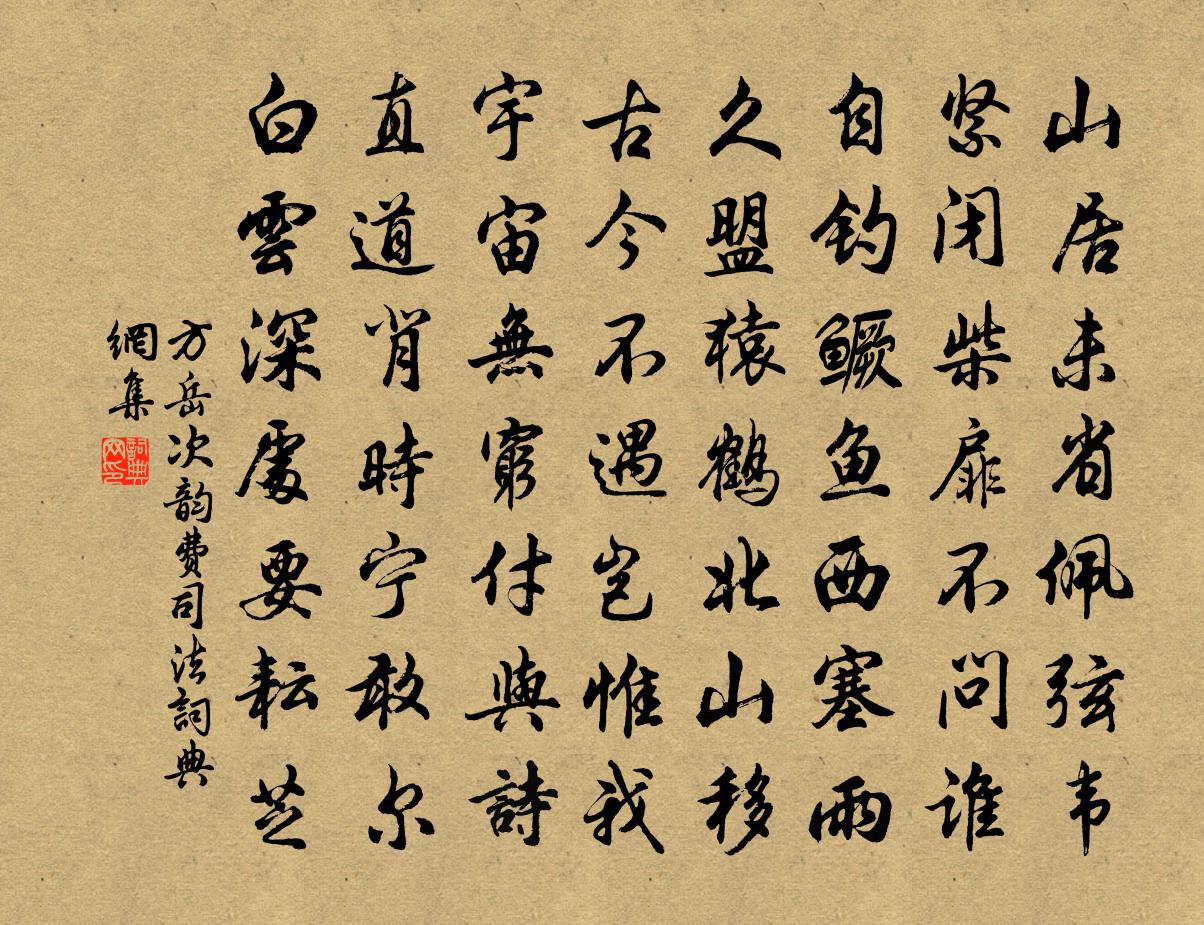 山居未省佩弦韦
紧闭柴扉不问谁
自钓鳜鱼西塞雨
久盟猿鹤北山移
古今不遇岂惟我
宇宙無窮付與詩
直道肖時宁敢尔
白雲深處要耘芝
方岳次韵費司法詞典
網集
詞典
网印